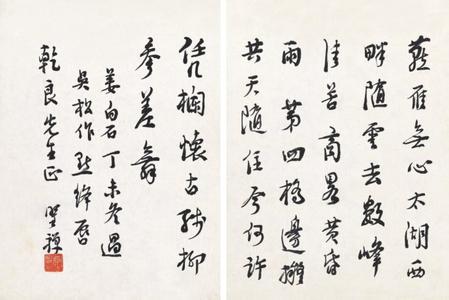 燕雁無心太湖西
畔隨雲去數峰
清苦商畧黃昏
雨 第四橋邊擬
共天隨住今何許
凭欄懷古殘柳
參差舞
姜白石丁未冬過
吳松作點絳唇
乾良先生正 禪